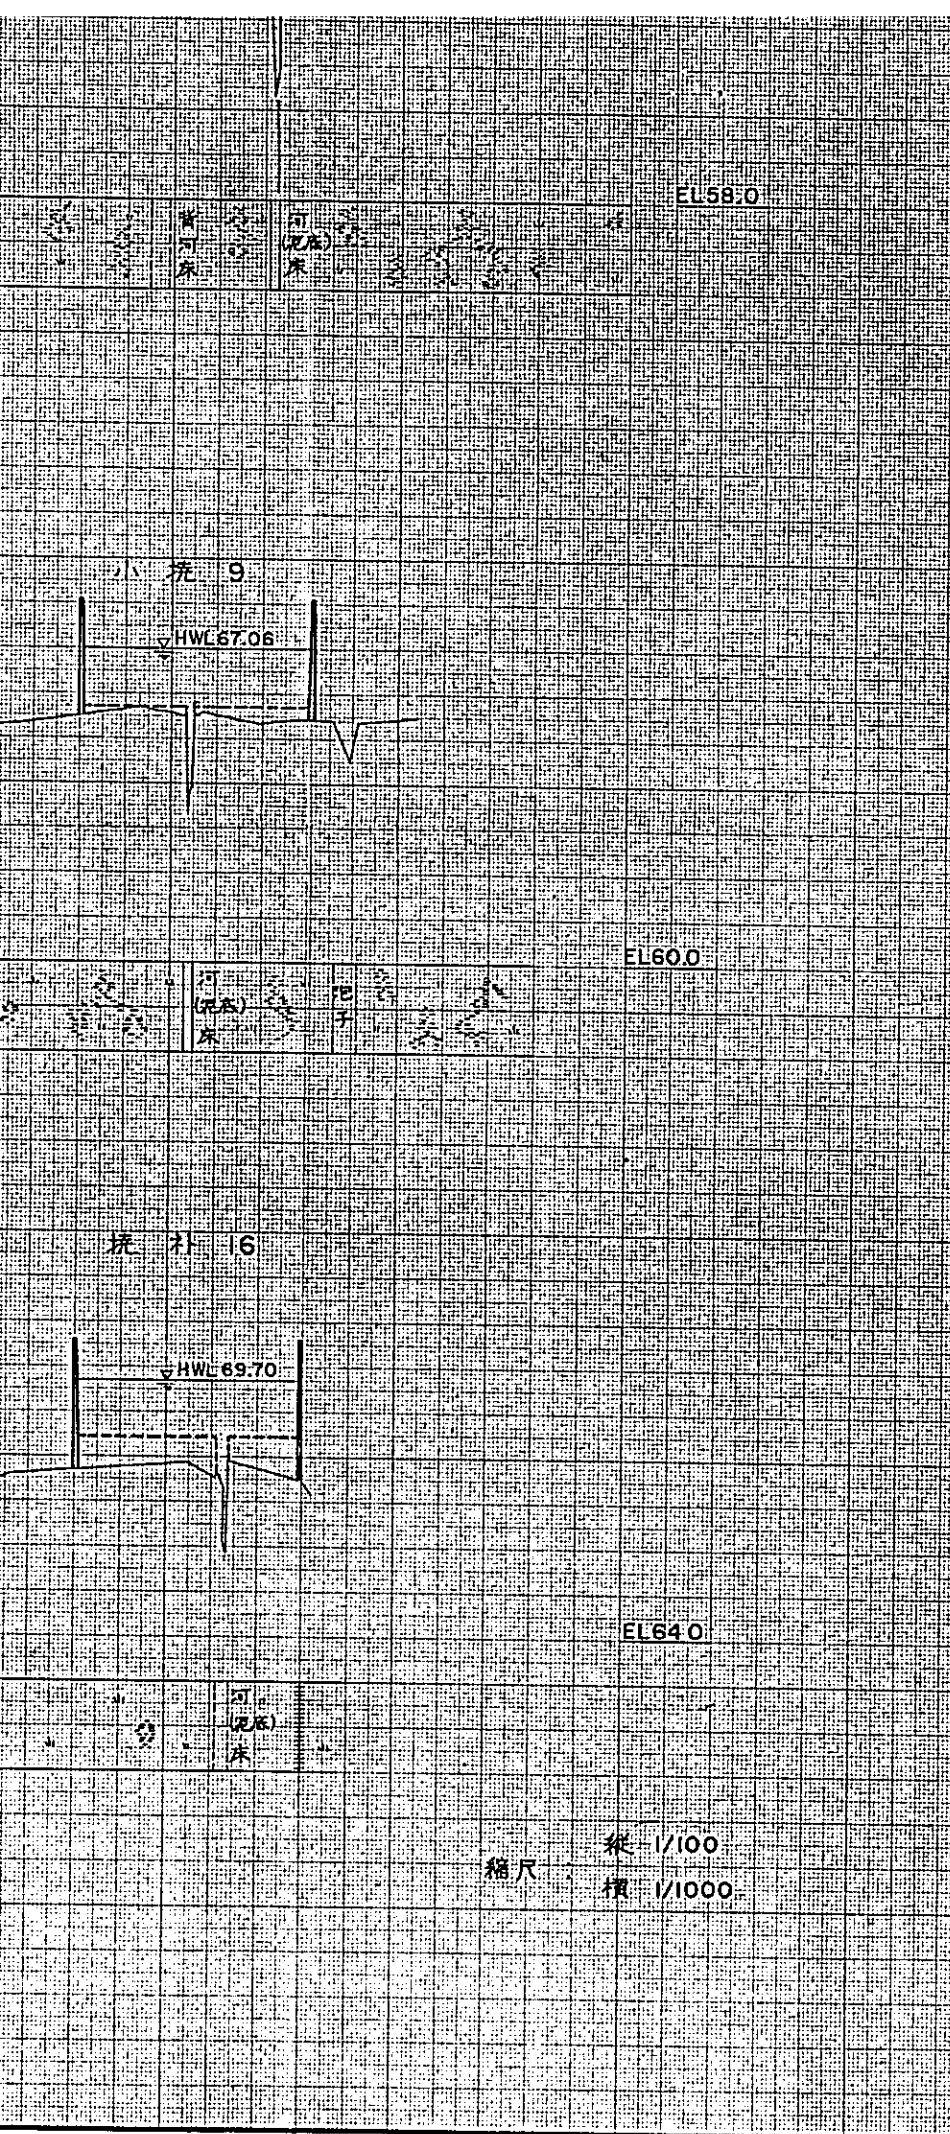 EL58.0
河
(泥底)
床
河
床
小 撓 9
HWL67.06
EL60.0
河
(泥底)
床
圯
子
撓 朴 16
HWL69.70
EL64.0
河
(泥底)
床
縮尺
縦 1/100
横 1/1000